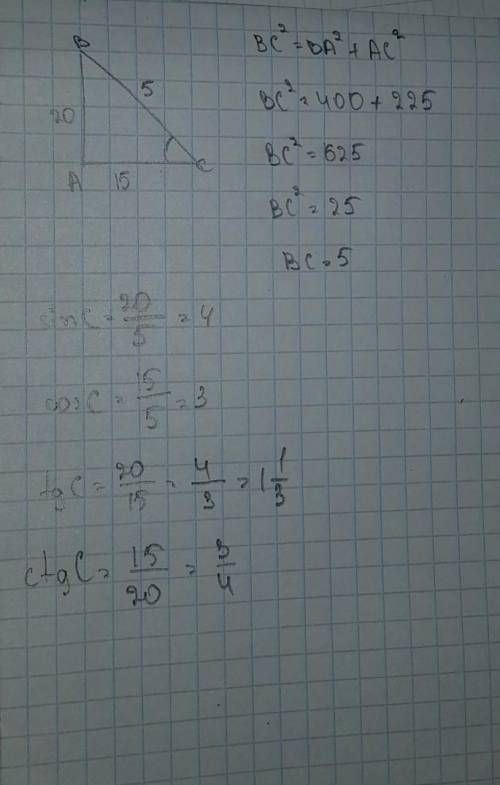 B
5
20
A 15 C
BC² = BA² + AC²
BC² = 400 + 225
BC² = 625
BC² = 25
BC = 5
sin C = 20/5 = 4
cos C = 15/5 = 3
tg C = 20/15 = 4/3 = 1 1/3
ctg C = 15/20 = 3/4